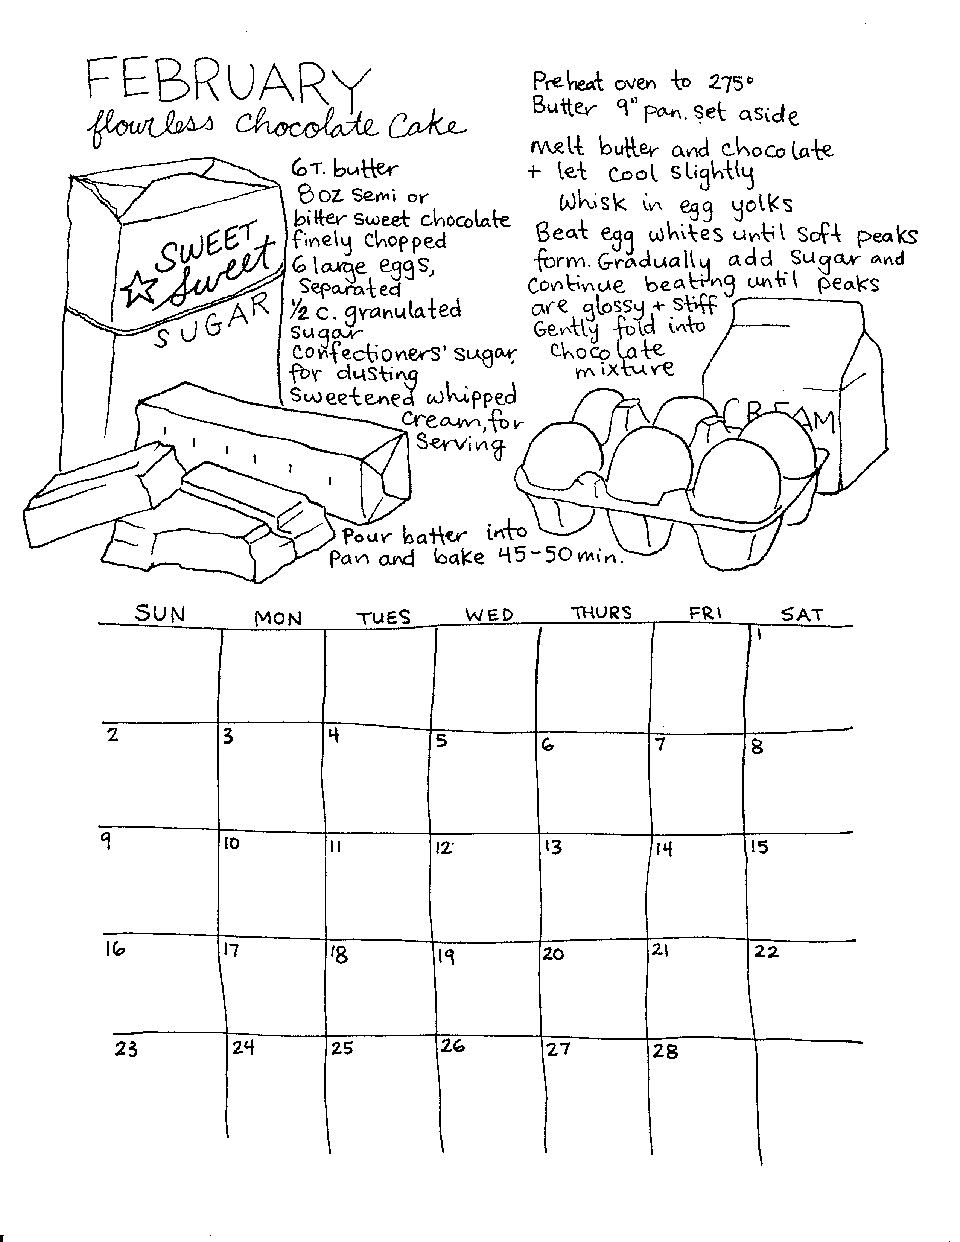 FEBRUARY
flourless chocolate Cake
6 T. butter
8 oz semi or
bitter sweet chocolate
finely chopped
6 large eggs,
Separated
1/2 c. granulated
sugar
Confectioners' sugar,
for dusting
Sweetened whipped
cream, for
Serving
Preheat oven to 275°
Butter 9" pan. set aside
melt butter and chocolate
+ let cool slightly
Whisk in egg yolks
Beat egg whites until soft peaks
form. Gradually add sugar and
Continue beating until peaks
are glossy + stiff
Gently fold into
Chocolate
mixture
Pour batter into
Pan and bake 45-50 min.
SWEET
Sweet
SUGAR
CREAM
SUN MON TUES WED THURS FRI SAT
1
2 3 4 5 6 7 8
9 10 11 12 13 14 15
16 17 18 19 20 21 22
23 24 25 26 27 28